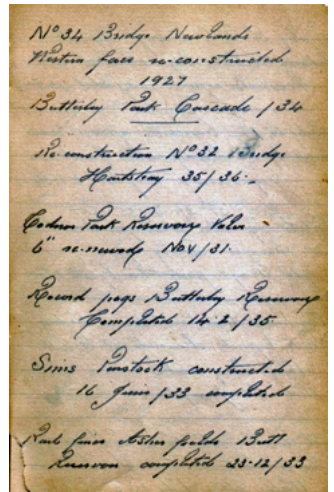 No 34 Bridge Newlands
Western face re-constructed
1927
Butterley Park Cascade /34
Re-construction No 32 Bridge
Hartshay 35/36.
Codnor Park Reservoir Valve
6" re-newed Nov/31.
Record pegs Butterley Reservoir
Completed 14.2/35
Sims constructed
16 June/33 completed
Butt
Reservoir completed 23-12/33